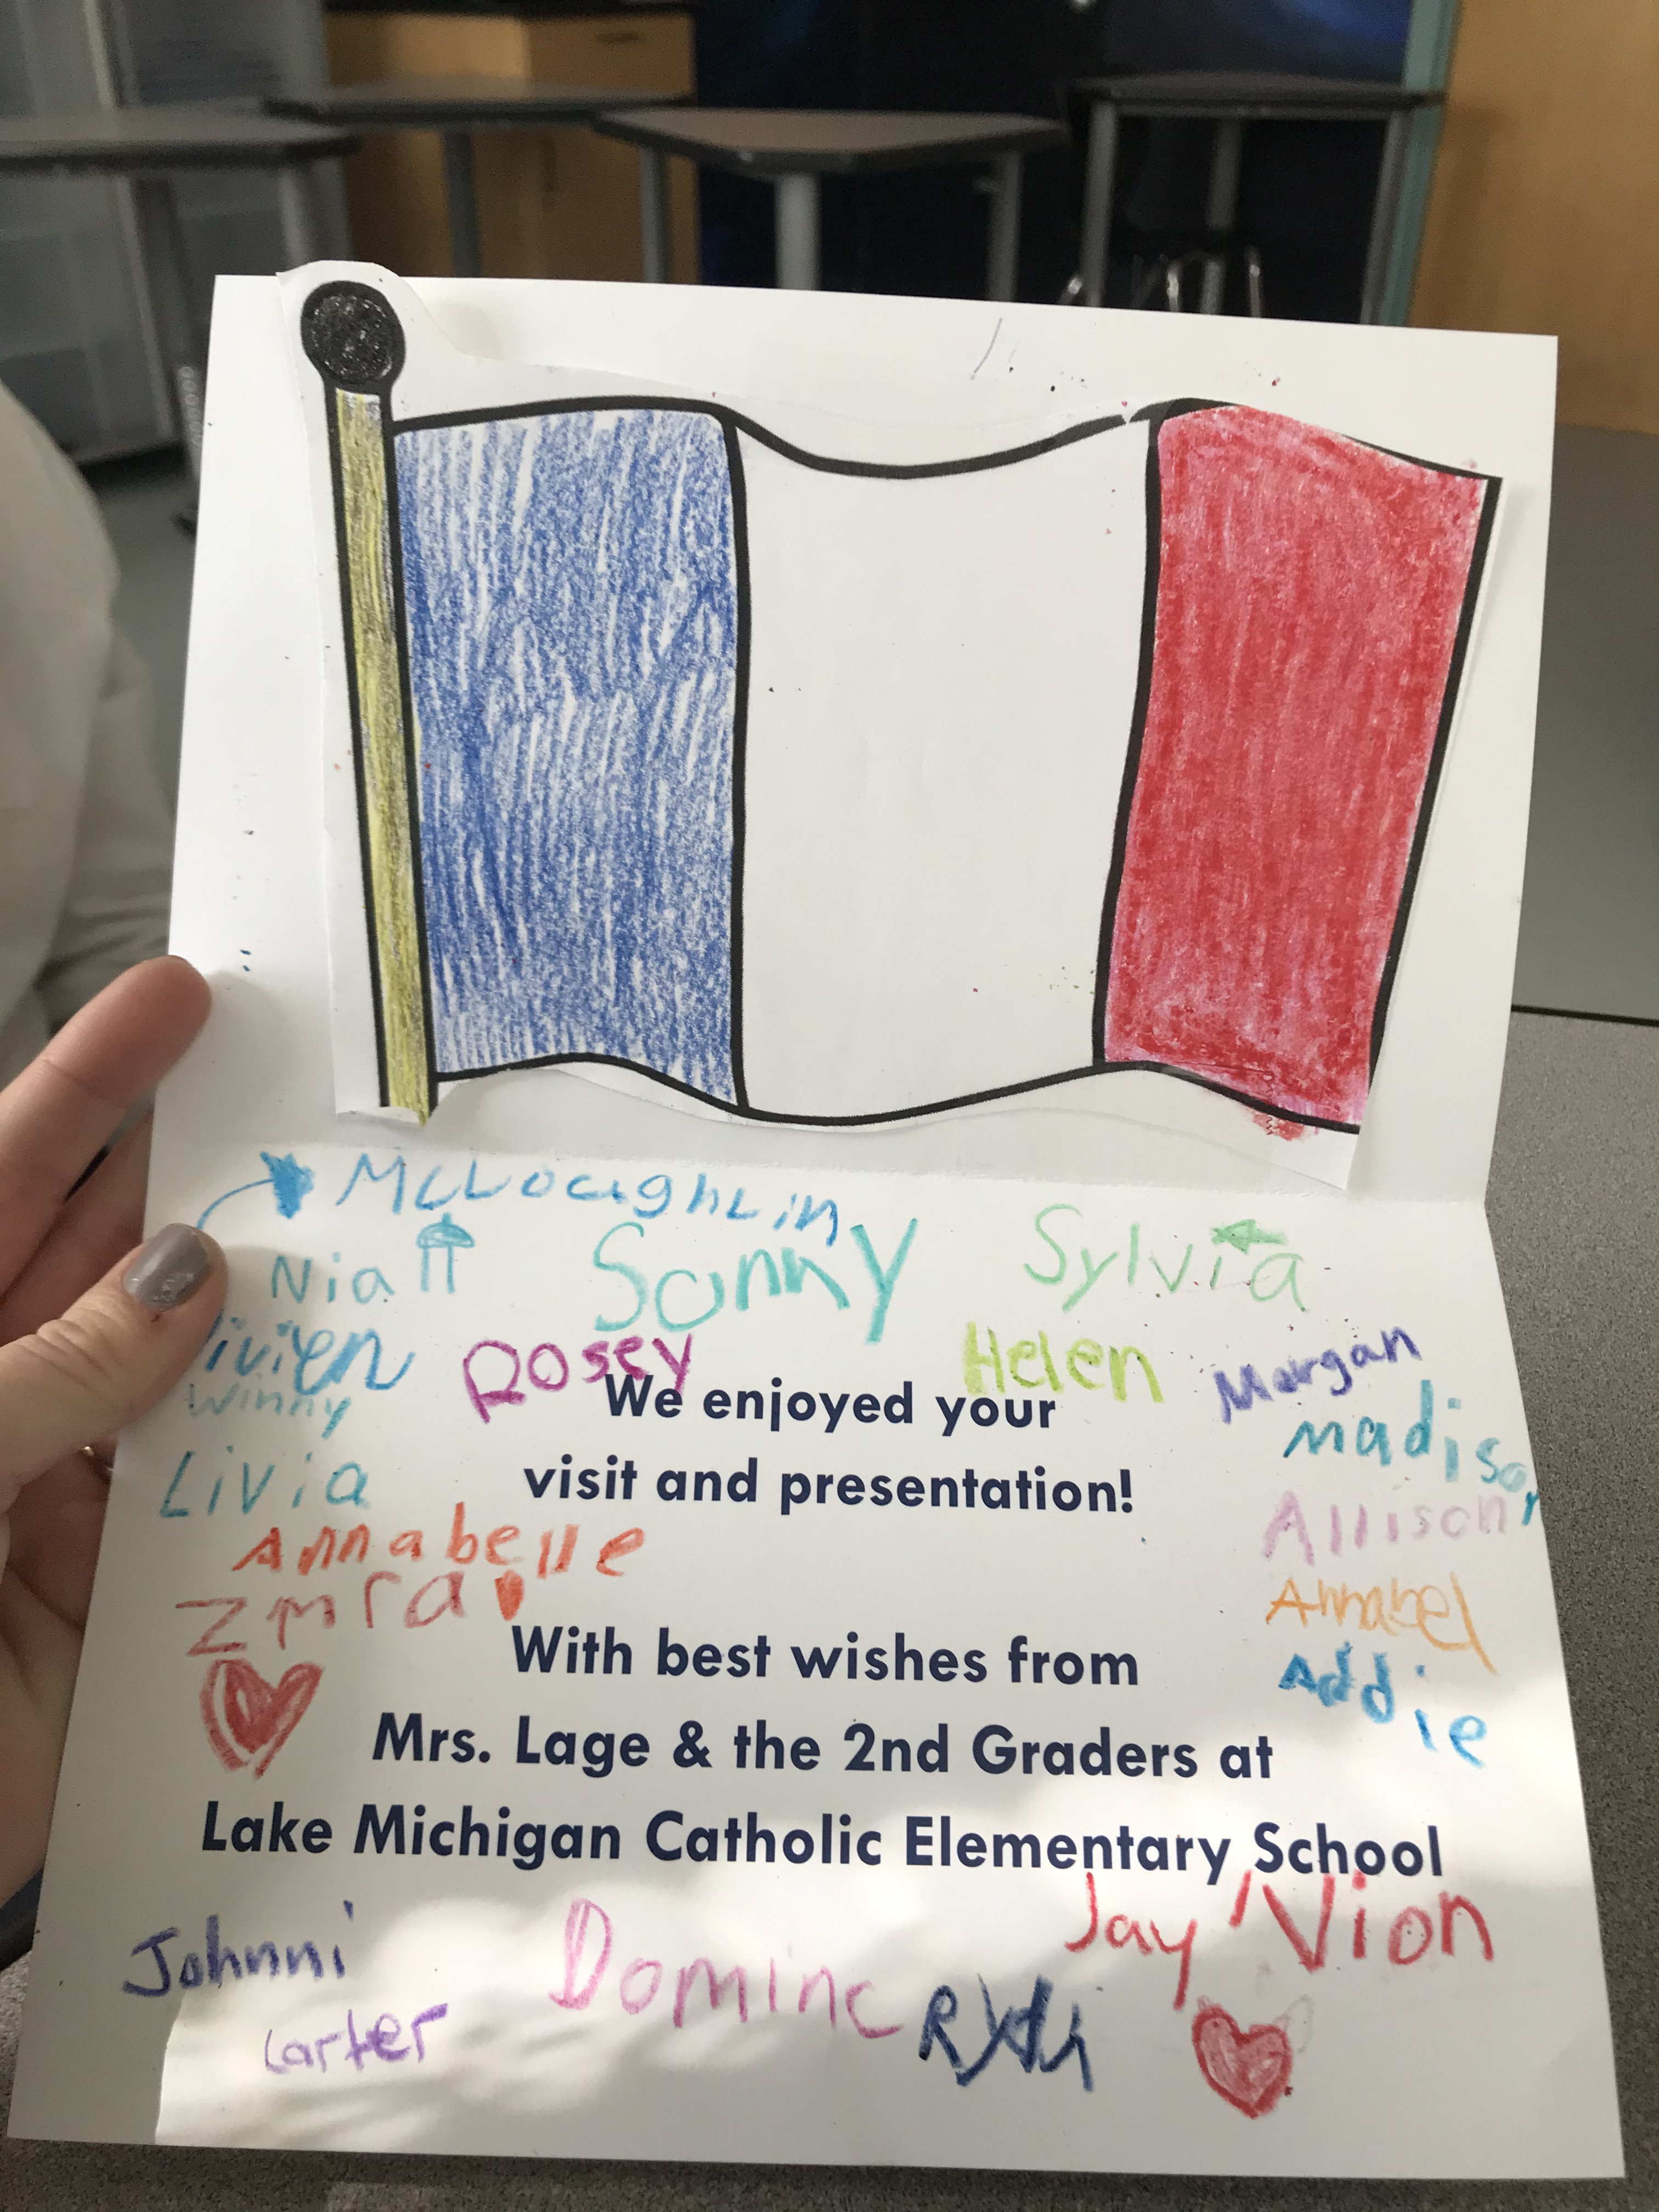 McLoughlin
Niall
Sonny
Sylvia
ivien
Rosey
Helen
Morgan
Winny
We enjoyed your
madison
Livia
visit and presentation!
Allison
Annabelle
Annabel
With best wishes from
Addie
Mrs. Lage & the 2nd Graders at
Lake Michigan Catholic Elementary School
Jay'Vion
Johnni
Dominc
Carter